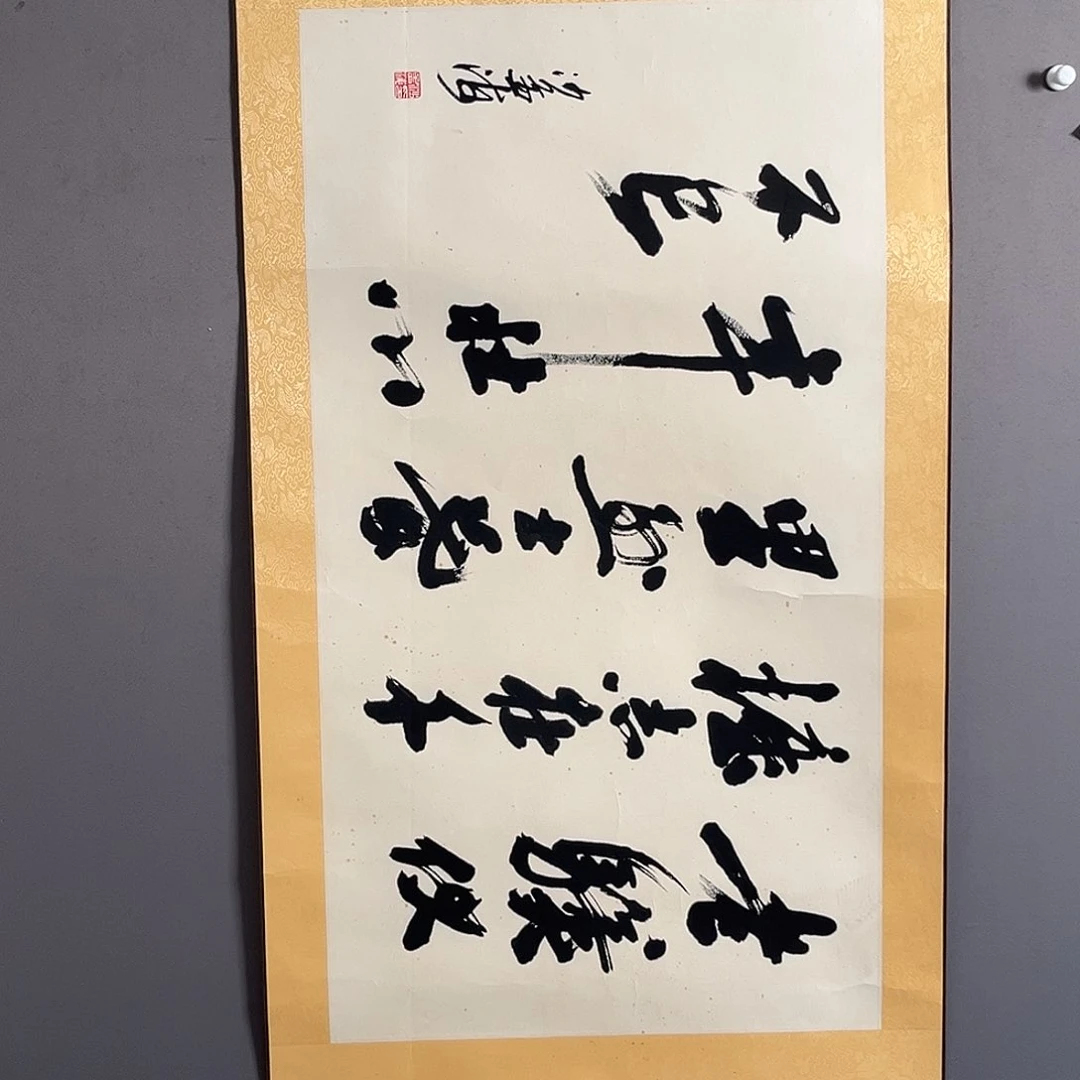 老驥伏
櫪志在千
里烈士暮
年壯心
不已